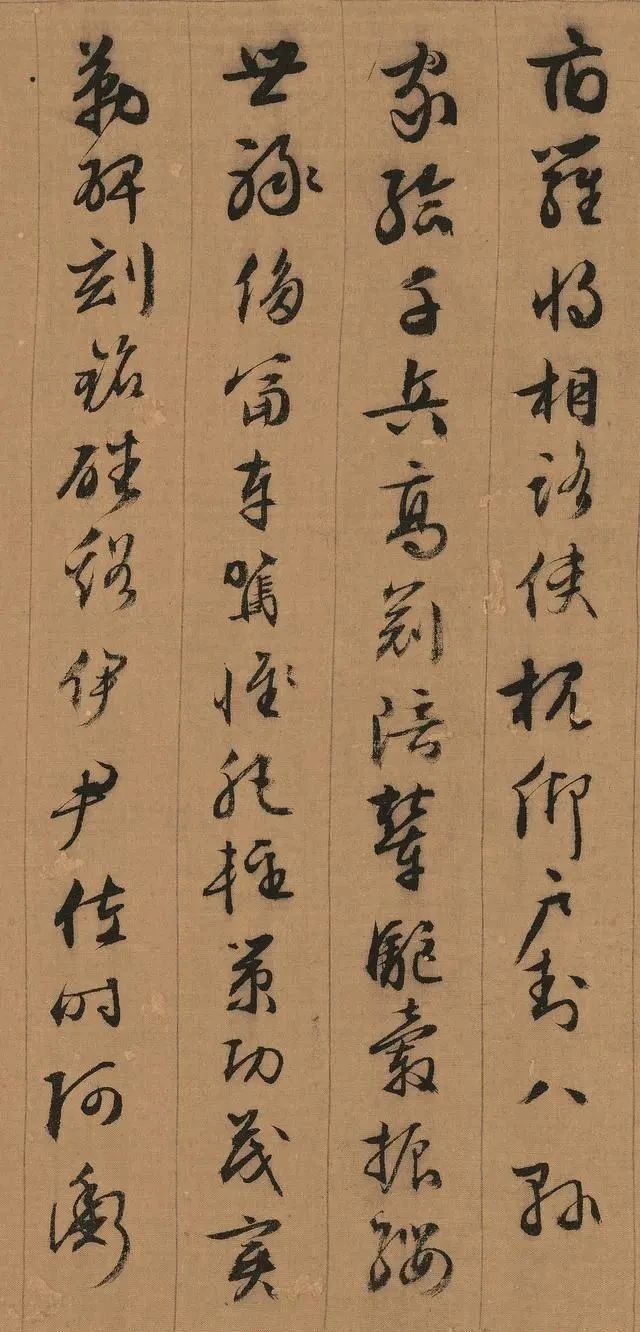 府羅將相路俠槐卿户封八縣
家給千兵高冠陪輦驅轂振纓
世祿侈富車駕惟肥輕策功茂實
勒碑刻銘磻溪伊尹佐時阿衡